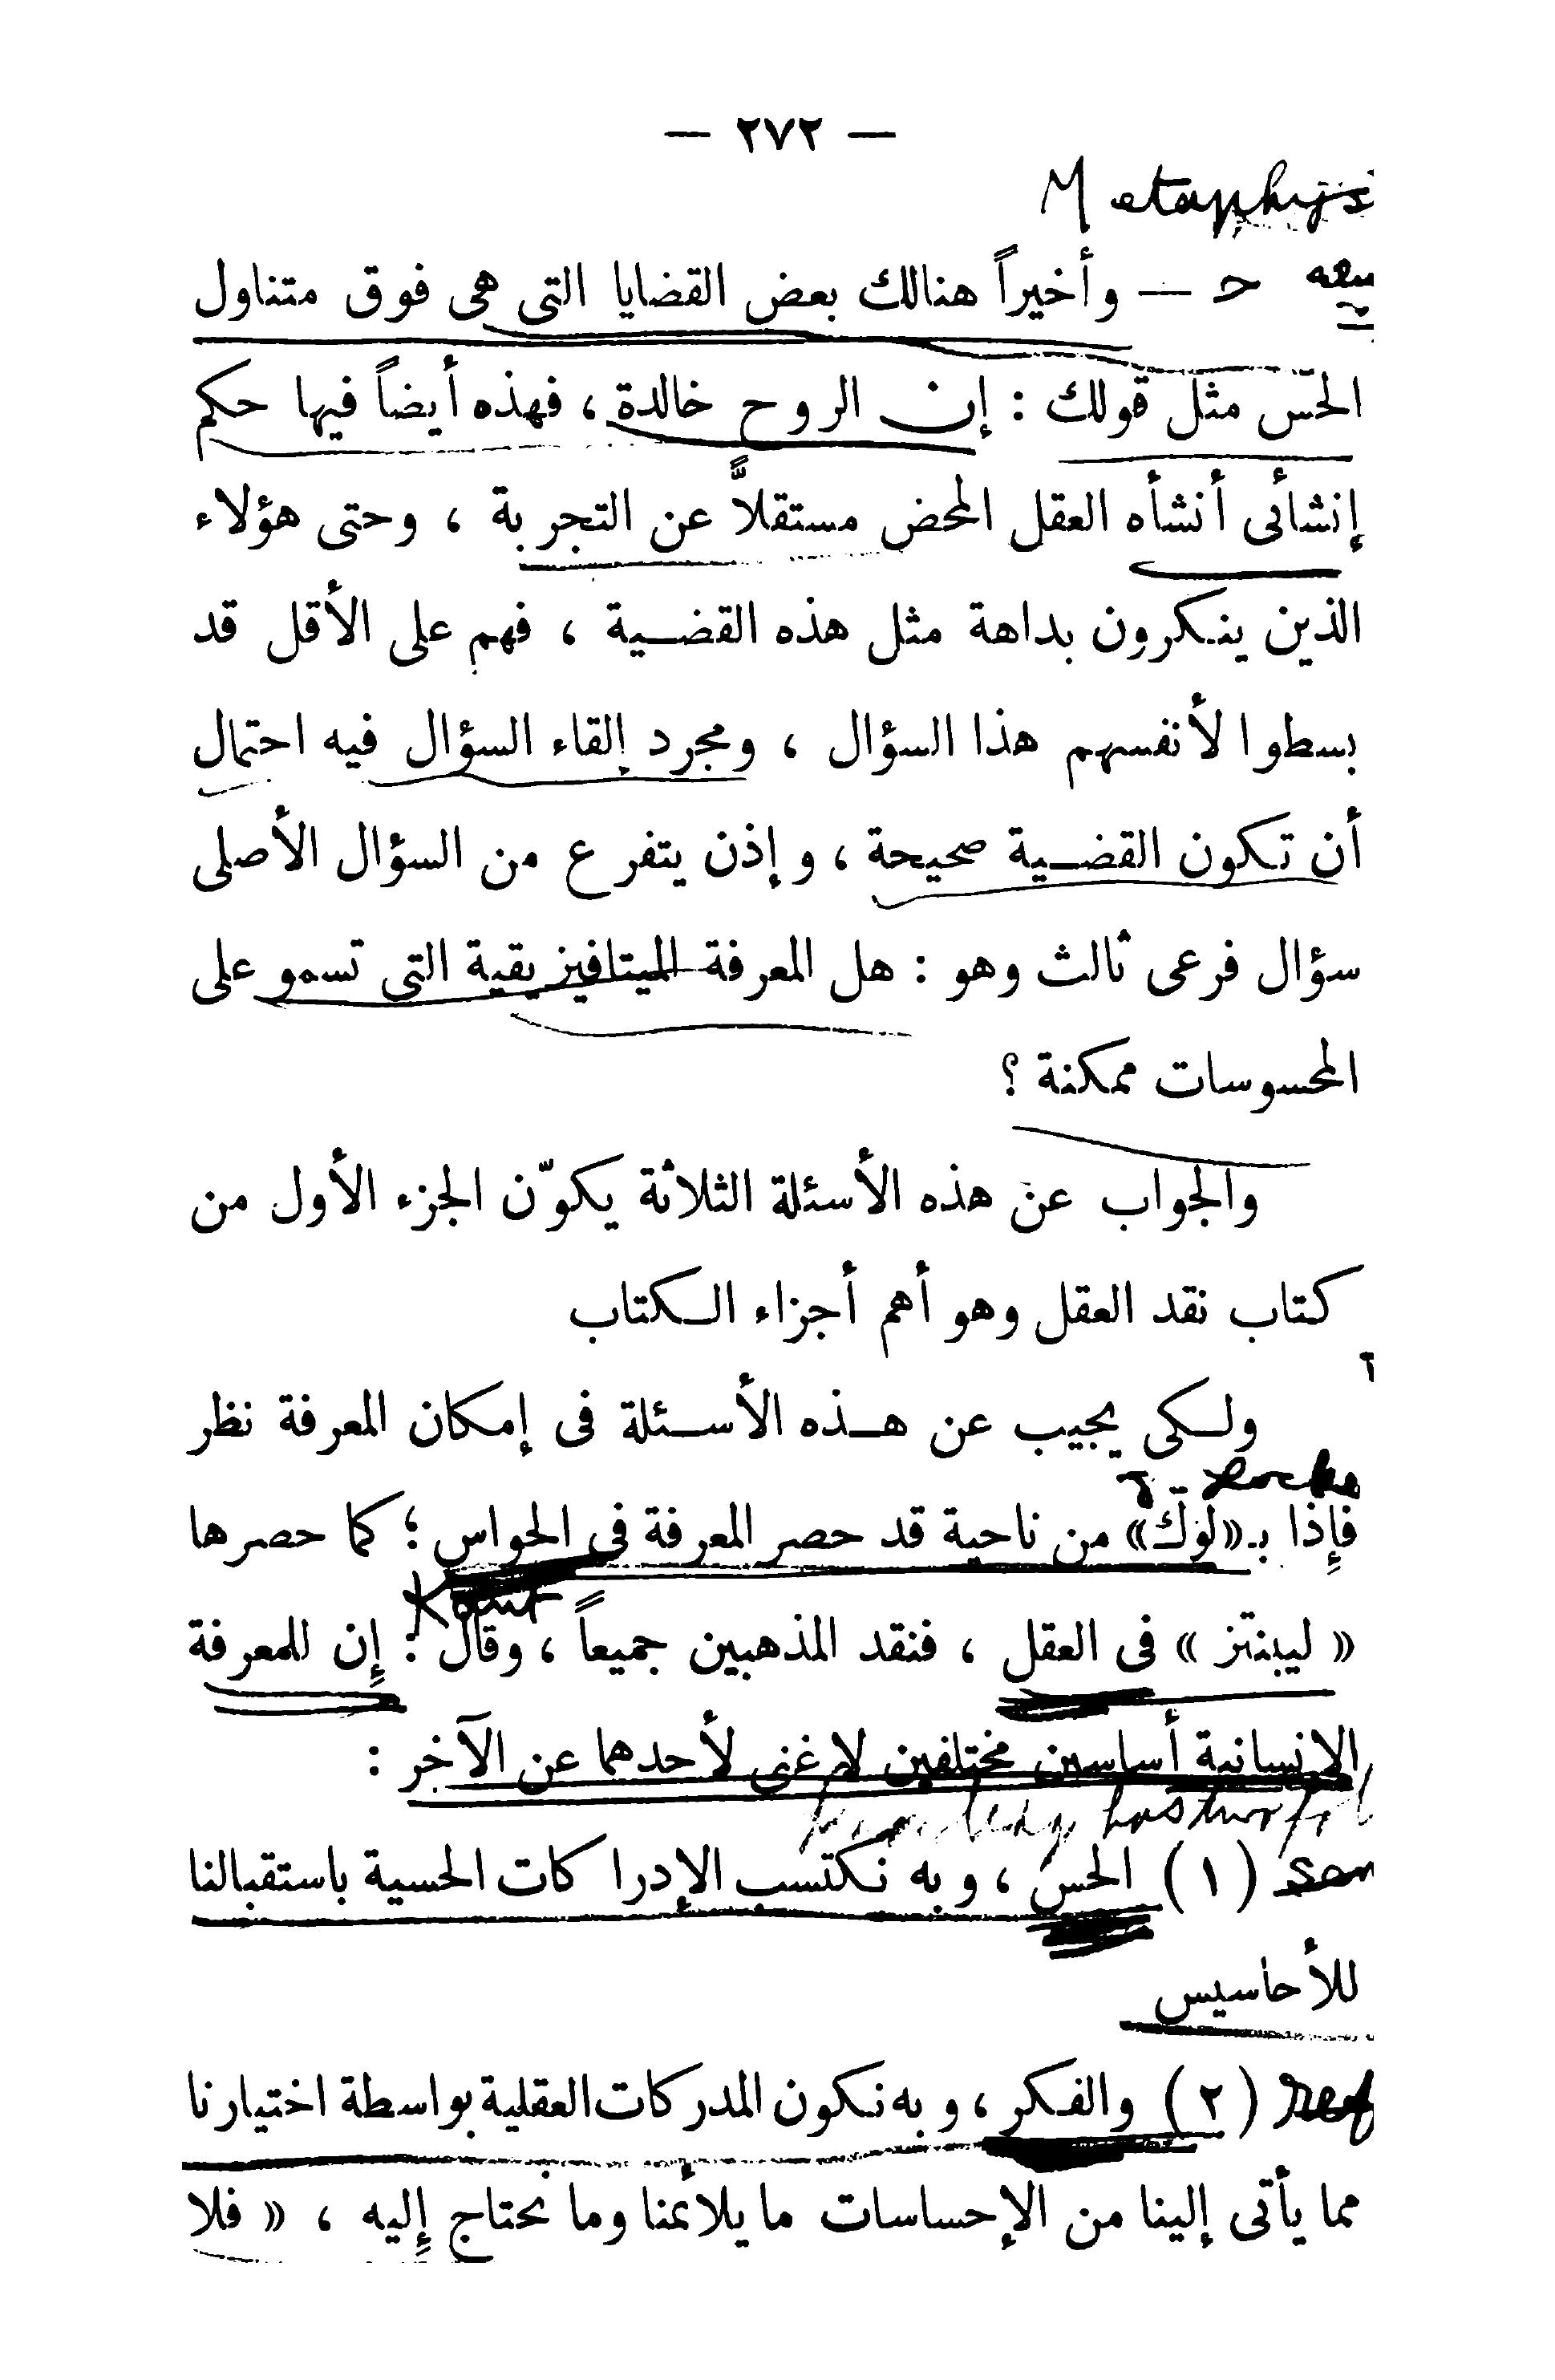 — ٢٧٢ —
Metaphys
حـ — وأخيراً هنالك بعض القضايا التى هى فوق متناول
الحسّ مثل قولك : إن الروح خالدة ، فهذه أيضاً فيها حكم
إنشائى أنشأه العقل المحض مستقلاًّ عن التجربة ، وحتى هؤلاء
الذين ينكرون بداهة مثل هذه القضية ، فهم على الأقل قد
بسطوا لأنفسهم هذا السؤال ، ومجرد إلقاء السؤال فيه احتمال
أن تكون القضية صحيحة ، وإذن يتفرع من السؤال الأصلى
سؤال فرعى ثالث وهو : هل المعرفة الميتافيزيقية التى تسمو على
المحسوسات ممكنة ؟
والجواب عن هذه الأسئلة الثلاثة يكوّن الجزء الأول من
كتاب نقد العقل وهو أهم أجزاء الكتاب
ولكى يجيب عن هذه الأسئلة فى إمكان المعرفة نظر
J. Locke
فإِذا بـ«لوك» من ناحية قد حصر المعرفة فى الحواس ؛ كما حصرها
Kant
« ليبنتز » فى العقل ، فنقد المذهبين جميعاً ، وقال : إِن للمعرفة
الإنسانية أساسين مختلفين لا غنى لأحدهما عن الآخر :
has two
sen (١) الحس ، وبه نكتسب الإدراكات الحسية باستقبالنا
للأحاسيس
ref (٢) والفكر ، وبه نكون المدركات العقلية بواسطة اختيارنا
مما يأتى إلينا من الإحساسات ما يلائمنا وما نحتاج إِليه ، « فلا